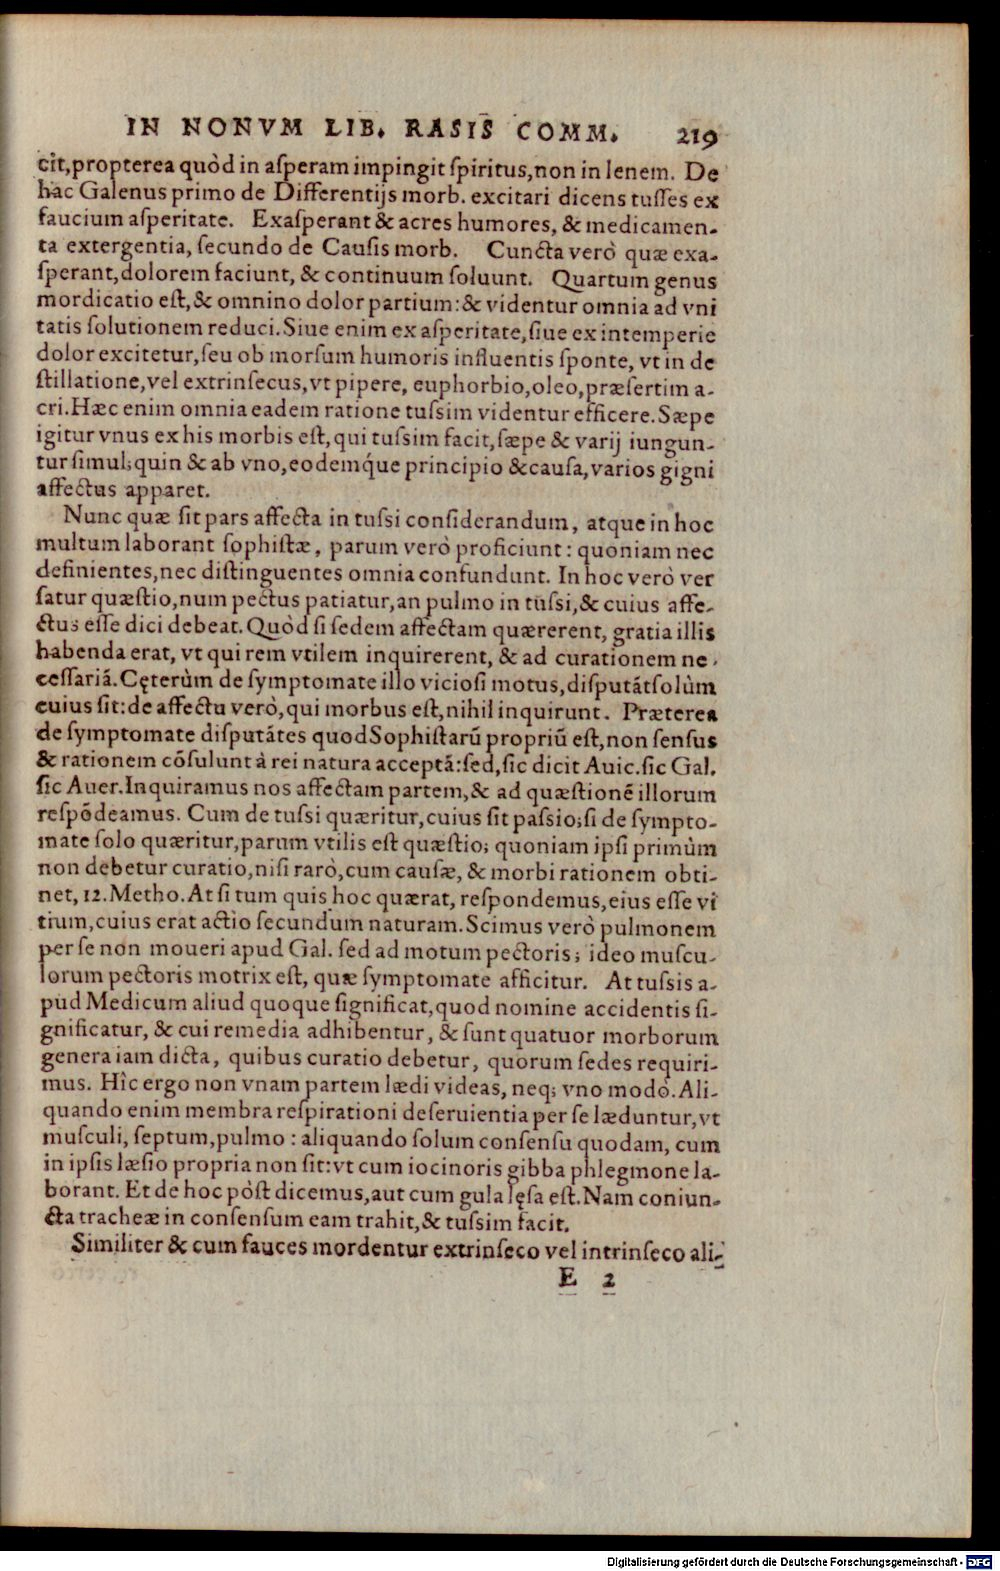 IN NONVM LIB. RASIS COMM. 219
cit,propterea quòd in aſperam impingit ſpiritus,non in lenem. De
hac Galenus primo de Differentijs morb. excitari dicens tuſſes ex
faucium aſperitate. Exaſperant & acres humores, & medicamen-
ta extergentia, ſecundo de Cauſis morb. Cuncta verò quæ exa-
ſperant,dolorem faciunt, & continuum ſoluunt. Quartum genus
mordicatio eſt,& omnino dolor partium:& videntur omnia ad vni
tatis ſolutionem reduci.Siue enim ex aſperitate,ſiue ex intemperie
dolor excitetur,ſeu ob morſum humoris influentis ſponte, vt in de
ſtillatione,vel extrinſecus,vt pipere, euphorbio,oleo,præſertim a-
cri.Hæc enim omnia eadem ratione tuſsim videntur efficere.Sæpe
igitur vnus ex his morbis eſt,qui tuſsim facit,ſæpe & varij iungun-
tur ſimul;quin & ab vno,eodemq́ue principio & cauſa,varios gigni
affectus apparet.
Nunc quæ ſit pars affecta in tuſsi conſiderandum, atque in hoc
multum laborant ſophiſtæ, parum verò proficiunt: quoniam nec
definientes,nec diſtinguentes omnia confundunt. In hoc verò ver
ſatur quæſtio,num pectus patiatur,an pulmo in tuſsi,& cuius affe-
ctus eſſe dici debeat.Quòd ſi ſedem affectam quærerent, gratia illis
habenda erat, vt qui rem vtilem inquirerent, & ad curationem ne-
ceſſariā.Cęterùm de ſymptomate illo vicioſi motus,diſputātſolùm
cuius ſit:de affectu verò,qui morbus eſt,nihil inquirunt. Præterea
de ſymptomate diſputātes quod Sophiſtarū propriū eſt,non ſenſus
& rationem cōſulunt à rei natura acceptā:ſed,ſic dicit Auic.ſic Gal.
ſic Auer.Inquiramus nos affectam partem,& ad quæſtionē illorum
reſpōdeamus. Cum de tuſsi quæritur,cuius ſit paſsio;ſi de ſympto-
mate ſolo quæritur,parum vtilis eſt quæſtio; quoniam ipſi primùm
non debetur curatio,niſi rarò,cum cauſæ, & morbi rationem obti-
net, 12. Metho.At ſi tum quis hoc quærat, reſpondemus,eius eſſe vi
tium,cuius erat actio ſecundum naturam.Scimus verò pulmonem
per ſe non moueri apud Gal. ſed ad motum pectoris; ideo muſcu-
lorum pectoris motrix eſt, quæ ſymptomate afficitur. At tuſsis a-
pud Medicum aliud quoque ſignificat,quod nomine accidentis ſi-
gnificatur, & cui remedia adhibentur, & ſunt quatuor morborum
genera iam dicta, quibus curatio debetur, quorum ſedes requiri-
mus. Hîc ergo non vnam partem lædi videas, neq; vno modò.Ali-
quando enim membra reſpirationi deſeruientia per ſe læduntur,vt
muſculi, ſeptum,pulmo: aliquando ſolum conſenſu quodam, cum
in ipſis læſio propria non ſit:vt cum iocinoris gibba phlegmone la-
borant. Et de hoc pòſt dicemus,aut cum gula lęſa eſt.Nam coniun-
cta tracheæ in conſenſum eam trahit,& tuſsim facit.
Similiter & cum fauces mordentur extrinſeco vel intrinſeco ali-
E 2
Digitalisierung gefördert durch die Deutsche Forschungsgemeinschaft - DFG